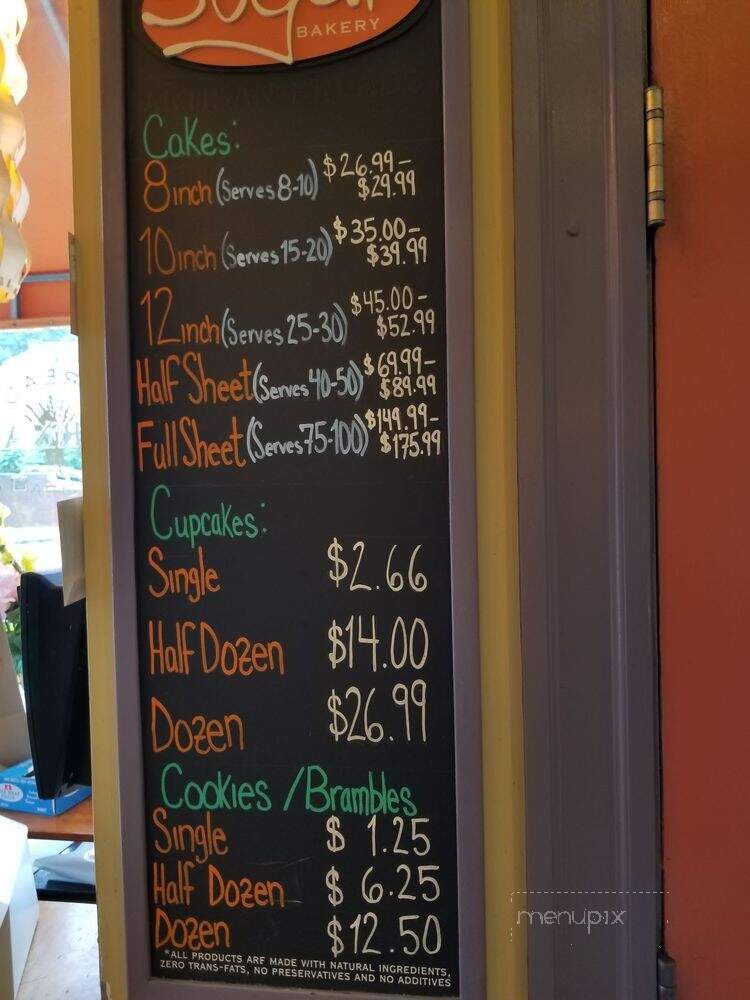 Sugar
BAKERY
Cakes:
8 inch (Serves 8-10) $26.99-
$29.99
10 inch (Serves 15-20) $35.00-
$39.99
12 inch (Serves 25-30) $45.00-
$52.99
Half Sheet (Serves 40-50) $69.99-
$89.99
Full Sheet (Serves 75-100) $149.99-
$175.99
Cupcakes:
Single $2.66
Half Dozen $14.00
Dozen $26.99
Cookies / Brambles
Single $1.25
Half Dozen $6.25
Dozen $12.50
*ALL PRODUCTS ARE MADE WITH NATURAL INGREDIENTS,
ZERO TRANS-FATS, NO PRESERVATIVES AND NO ADDITIVES
menupix